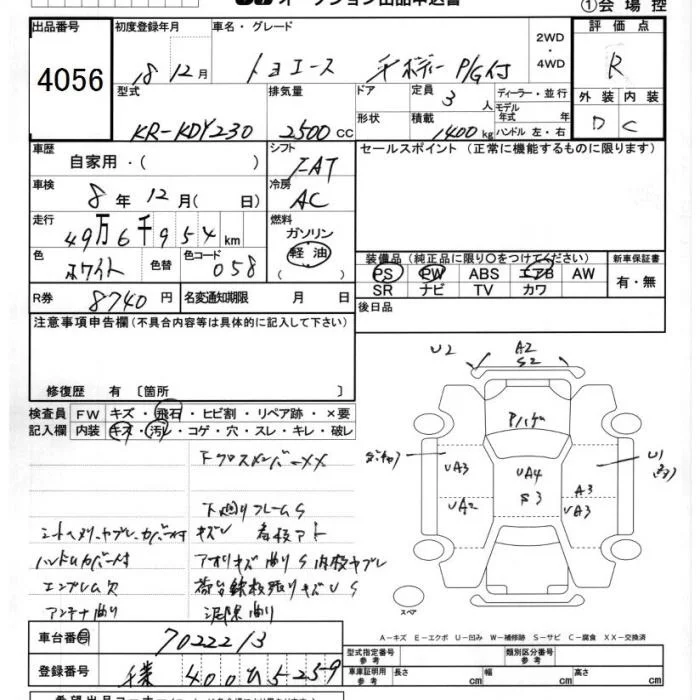 オークション出品申込書
①会場控
出品番号 初度登録年月 車名・グレード 2WD ・ 4WD 評価点
4056 18 12月 トヨエース 平ボディー P/G付 R
型式 排気量 ドア 定員 3 人 ディーラー・並行 外装 内装
KR-KDY230 2500 CC 形状 積載 1400 kg モデル年式 年 ハンドル 左・右 D C
車歴 自家用・( ) シフト FAT セールスポイント (正常に機能するものに限ります)
車検 8年 12月( 日) 冷房 AC
走行 49万6千954km 燃料 ガソリン 軽油 ( )
色 ホワイト 色替 色コード 058
装備品 (純正品に限り○をつけてください) 新車保証書
PS PW ABS エアB AW 有・無
SR ナビ TV カワ
R券 8740円 名変通知期限 月 日 後日品
注意事項申告欄(不具合内容等は具体的に記入して下さい)
修復歴 有 〔箇所 〕
検査員 FW キズ・飛石・ヒビ割・リペア跡・×要
記入欄 内装 キズ・汚レ・コゲ・穴・スレ・キレ・破レ
U2 A2 S2
P/ハゲ
UA3 UA4 U1
UA2 S3 A3 UA3
下クロスメンバーXX
下廻りフレームS
シートヘタリ、ヤブレ、カバー付 キズU 看板アト
ハンドルカバー付 アオリキズ曲りS 内板ヤブレ
エンブレム欠 荷台鉄板張りキズUS
アンテナ曲り 泥除曲り
スペア
A-キズ E-エクボ U-凹み W-補修跡 S-サビ C-腐食 XX-交換済
車台番号 7022213 型式指定番号 参考 類別区分番号 参考
登録番号 千葉 400 5-259 車庫証明用 参考 長さ cm 幅 cm 高さ cm